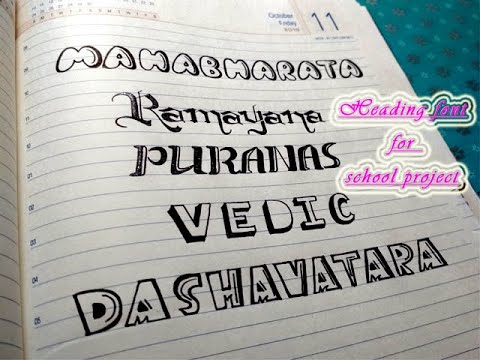 October
Friday
11
MAHABHARATA
Ramayana
PURANAS
VEDIC
DASHAVATARA
Heading font
for
school project